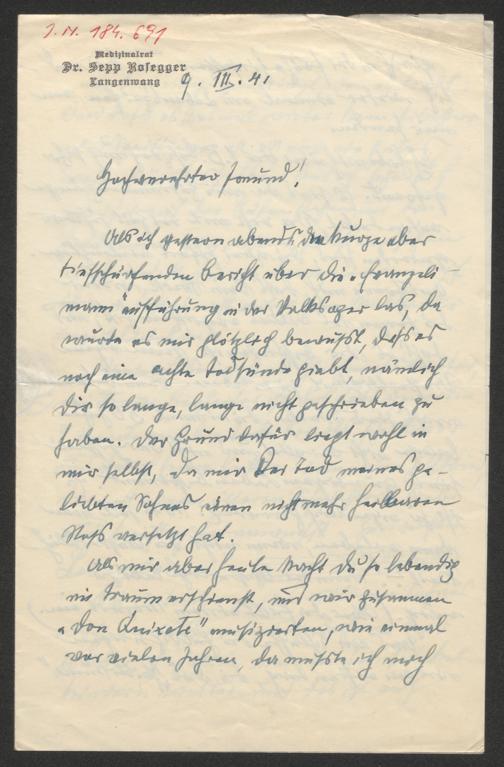 I.N. 184.691
Medizinalrat
Dr. Sepp Rosegger
Langenwang
9. III. 41
Hochverehrter Freund!
Als ich gestern abends den kurze aber
tiefschürfenden Bericht über die "Evangeli-
mann" Aufführung in der Volksoper las, da
wurde es mir plötzlich bewusst, dass es
noch eine achte Todsünde giebt, nämlich
Dir so lange, lange nicht geschrieben zu
haben. Der Grund dafür liegt wohl in
mir selbst, da mir der Tod meines ge-
liebten Sohnes einen nicht mehr heilbaren
Stoss versetzt hat.
Als mir aber heute Nacht Du so lebendig
im Traum erschienst, und wir zusammen
"Don Quixote" musizierten, wie einmal
vor vielen Jahren, da musste ich mich